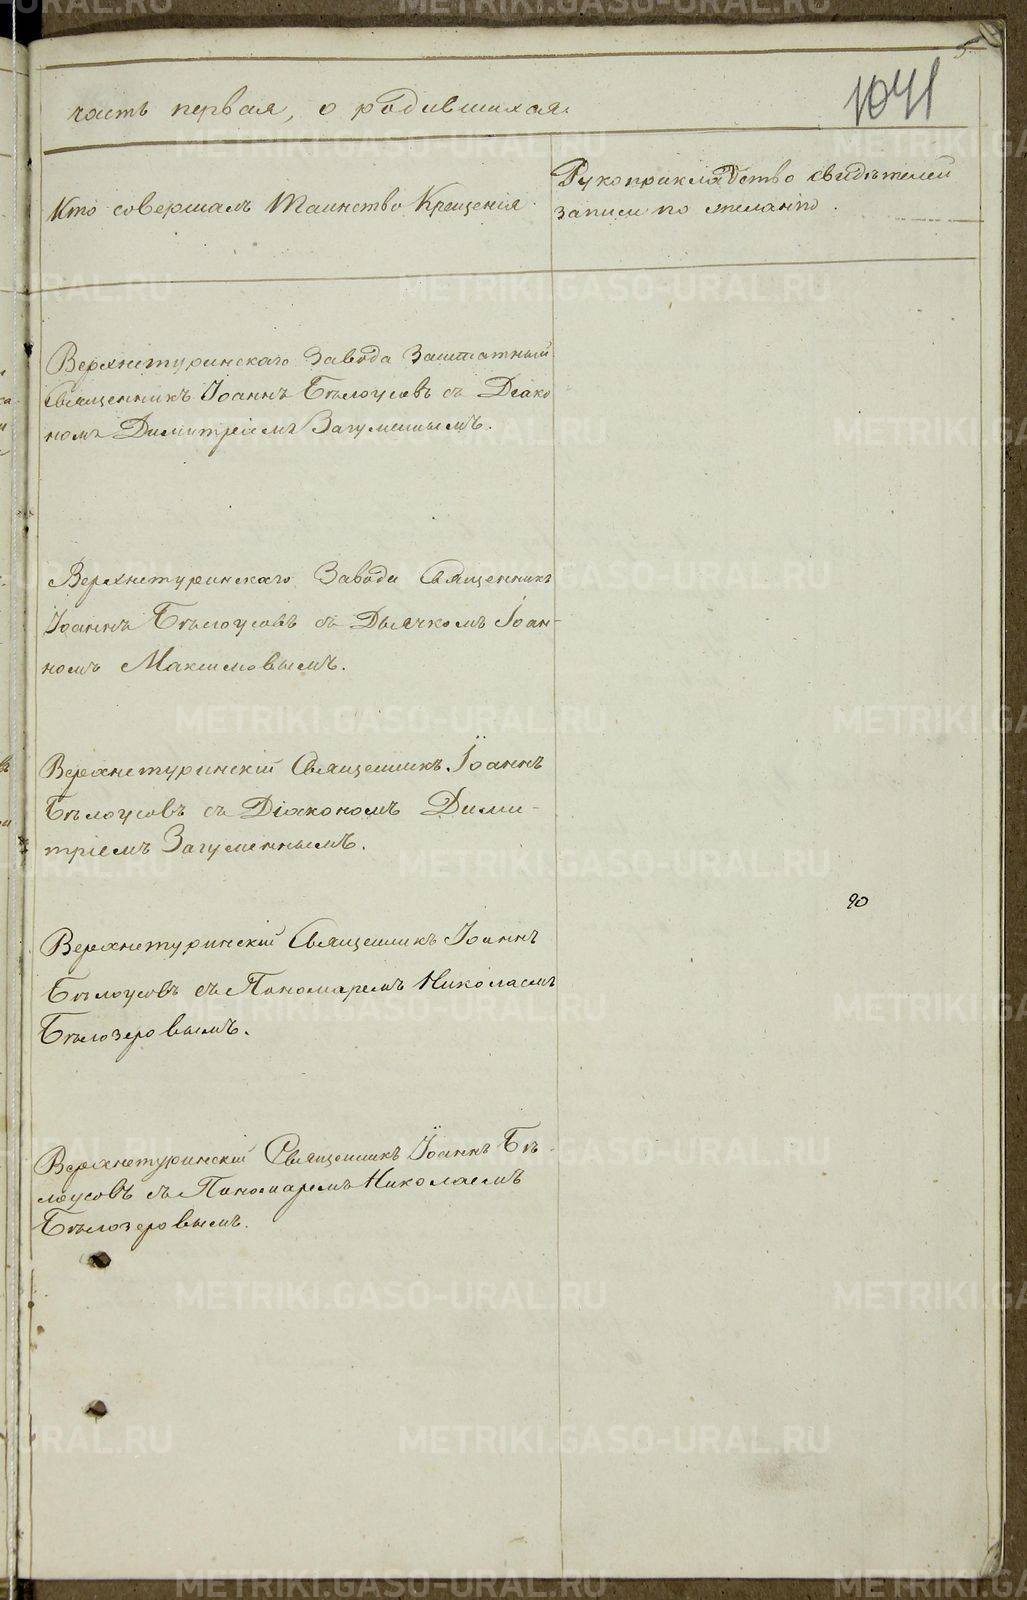 5
1041
часть первая, о родившихся.
Кто совершалъ Таинство Крещенія.
Рукоприкладство свидѣтелей
записи по желанію.
Верхнетуринскаго Завода Заштатный
Священникъ Іоаннъ Бѣлоусовъ съ Діако
номъ Димитріемъ Загуменнымъ.
Верхнетуринскаго Завода Священникъ
Іоаннъ Бѣлоусовъ съ Дьячкомъ Іоан-
номъ Максимовымъ.
Верхнетуринскій Священникъ Іоаннъ
Бѣлоусовъ съ Діакономъ Дими-
тріемъ Загуменнымъ.
90
Верхнетуринскій Священникъ Іоаннъ
Бѣлоусовъ съ Пономаремъ Николаемъ
Бѣлозеровымъ.
Верхнетуринскій Священникъ Іоаннъ Бѣ-
лоусовъ съ Пономаремъ Николаемъ
Бѣлозеровымъ.
METRIKI.GASO-URAL.RU